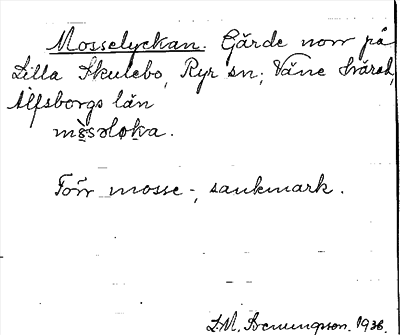 Mosselyckan. Gärde norr på
Lilla Skulebo, Ryr sn; Väne härad,
Älfsborgs län
Förr mosse-, sankmark.
1936.